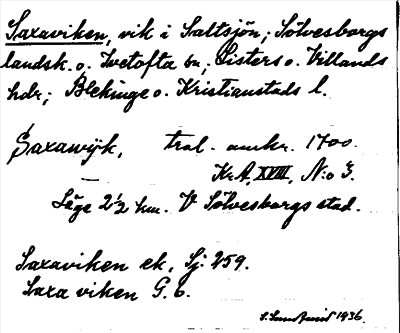 Saxaviken, vik i Saltsjön; Sölvesborgs
landsk. o. Ivetofta sn; Listers o. Villands
hdr; Blekinge o. Kristianstads l.
Saxawijk, tral. omkr. 1700.
Kr.A, XVIII, N:o 3.
Läge 2½ km. V Sölvesborgs stad.
Saxaviken ek, Sj: 259.
Saxa viken G. 6.
1936.